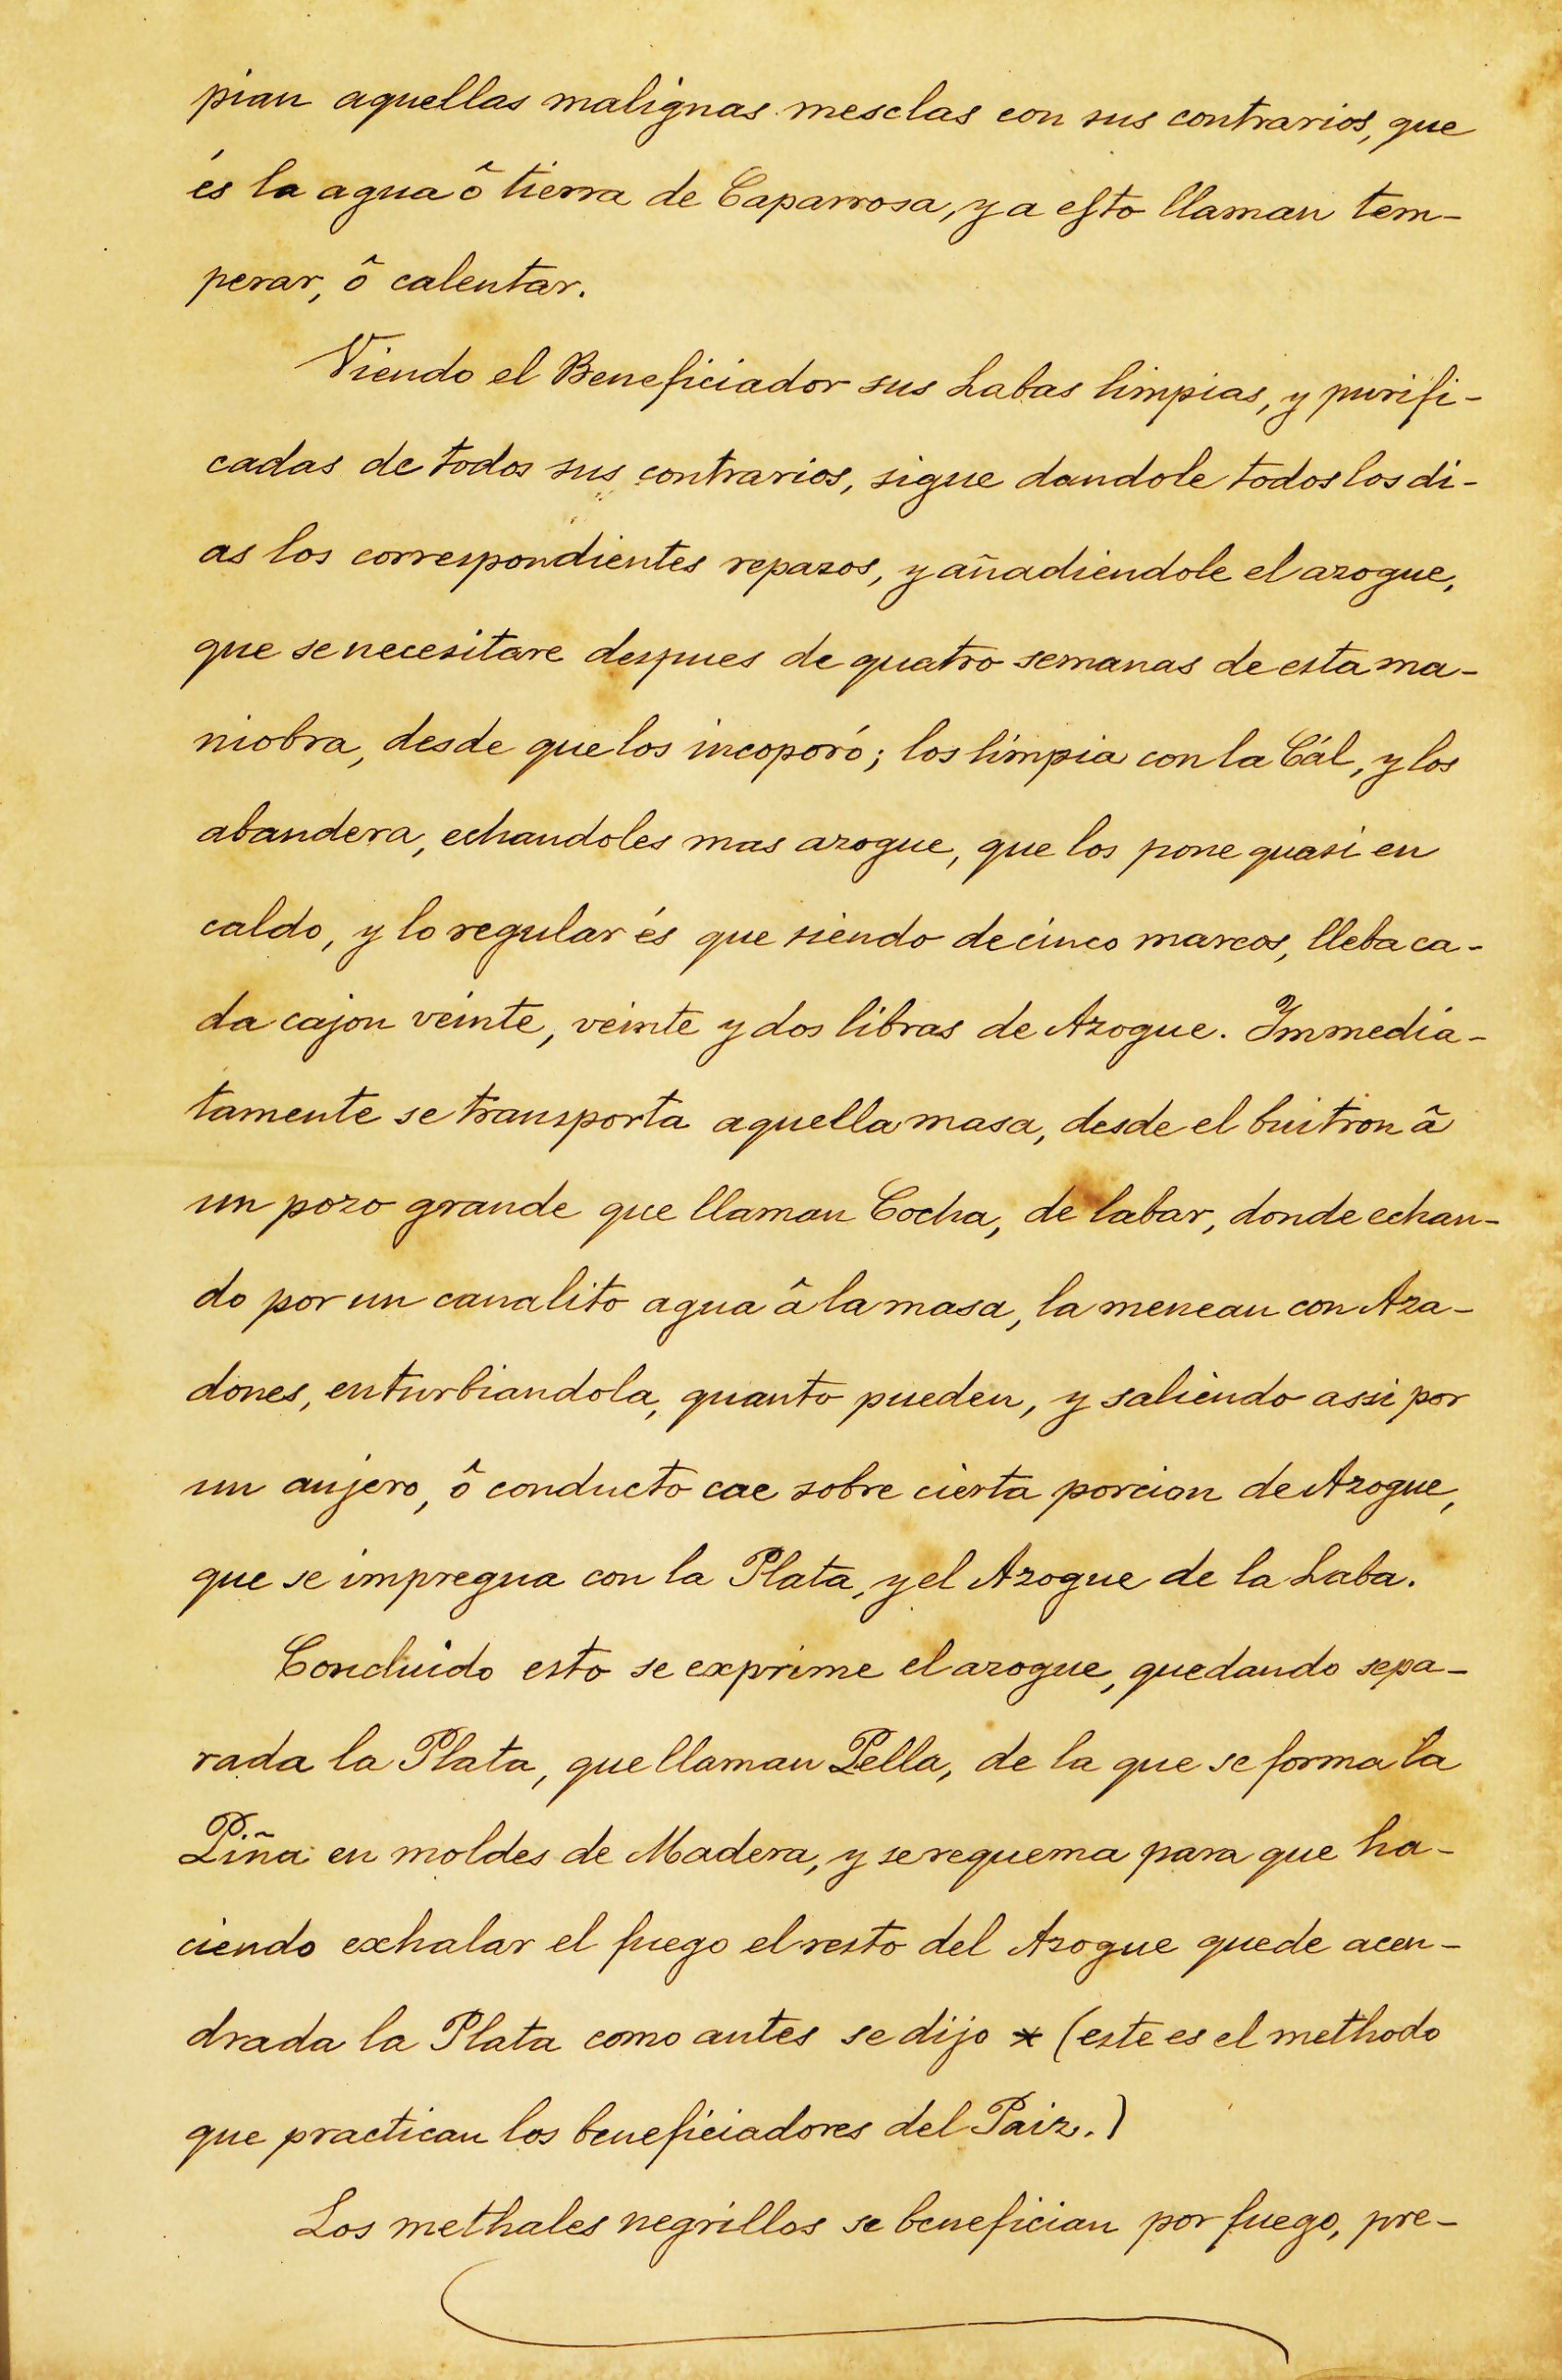 pian aquellas malignas mesclas con sus contrarios, que
és la agua ô tierra de Caparrosa, y a esto llaman tem-
perar, ô calentar.
Viendo el Beneficiador sus Labas limpias, y purifi-
cadas de todos sus contrarios, sigue dandole todos los di-
as los correspondientes repasos, y añadiendole el azogue,
que se necesitare despues de quatro semanas de esta ma-
niobra, desde que los incoporó; los limpia con la Cál, y los
abandera, echandoles mas azogue, que los pone quasi en
caldo, y lo regular és que siendo de cinco marcos, lleba ca-
da cajon veinte, veinte y dos libras de Azogue. Immedia-
tamente se transporta aquella masa, desde el buitron â
un pozo grande que llaman Cocha, de labar, donde echan-
do por un canalito agua â la masa, la menean con Aza-
dones, enturbiandola, quanto pueden, y saliendo assi por
un aujero, ô conducto cae sobre cierta porcion de Azogue,
que se impregna con la Plata, y el Azogue de la Laba.
Concluido esto se exprime el azogue, quedando sepa-
rada la Plata, que llaman Pella, de la que se forma la
Piña en moldes de Madera, y se requema para que ha-
ciendo exhalar el fuego el resto del Azogue quede acen-
drada la Plata como antes se dijo * (este es el methodo
que practican los beneficiadores del Paiz.)
Los methales negrillos se benefician por fuego, pre-